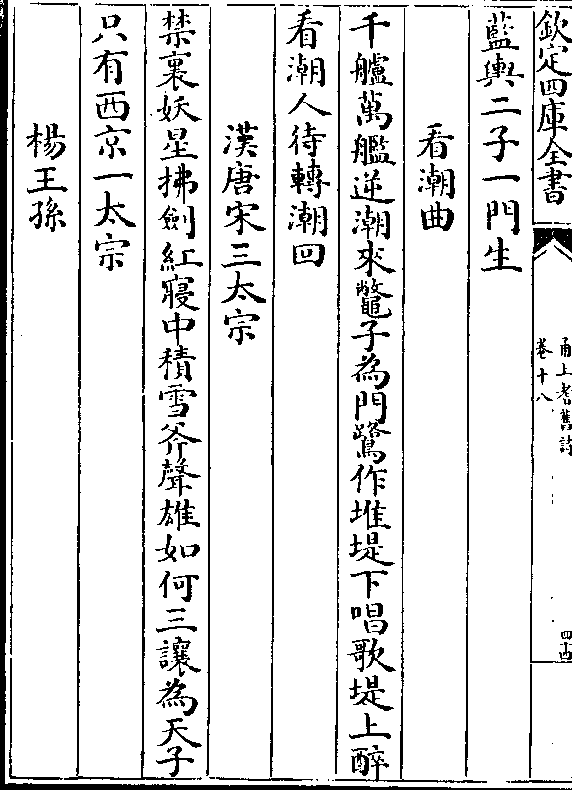 欽定四庫全書
甬上耆舊詩
卷十八
四十四
藍輿二子一門生
看潮曲
千艫萬艦逆潮來鼈子為門鷺作堆堤下唱歌堤上醉
看潮人待轉潮回
漢唐宋三太宗
禁裏妖星拂劍紅寢中積雪斧聲雄如何三讓為天子
只有西京一太宗
楊王孫